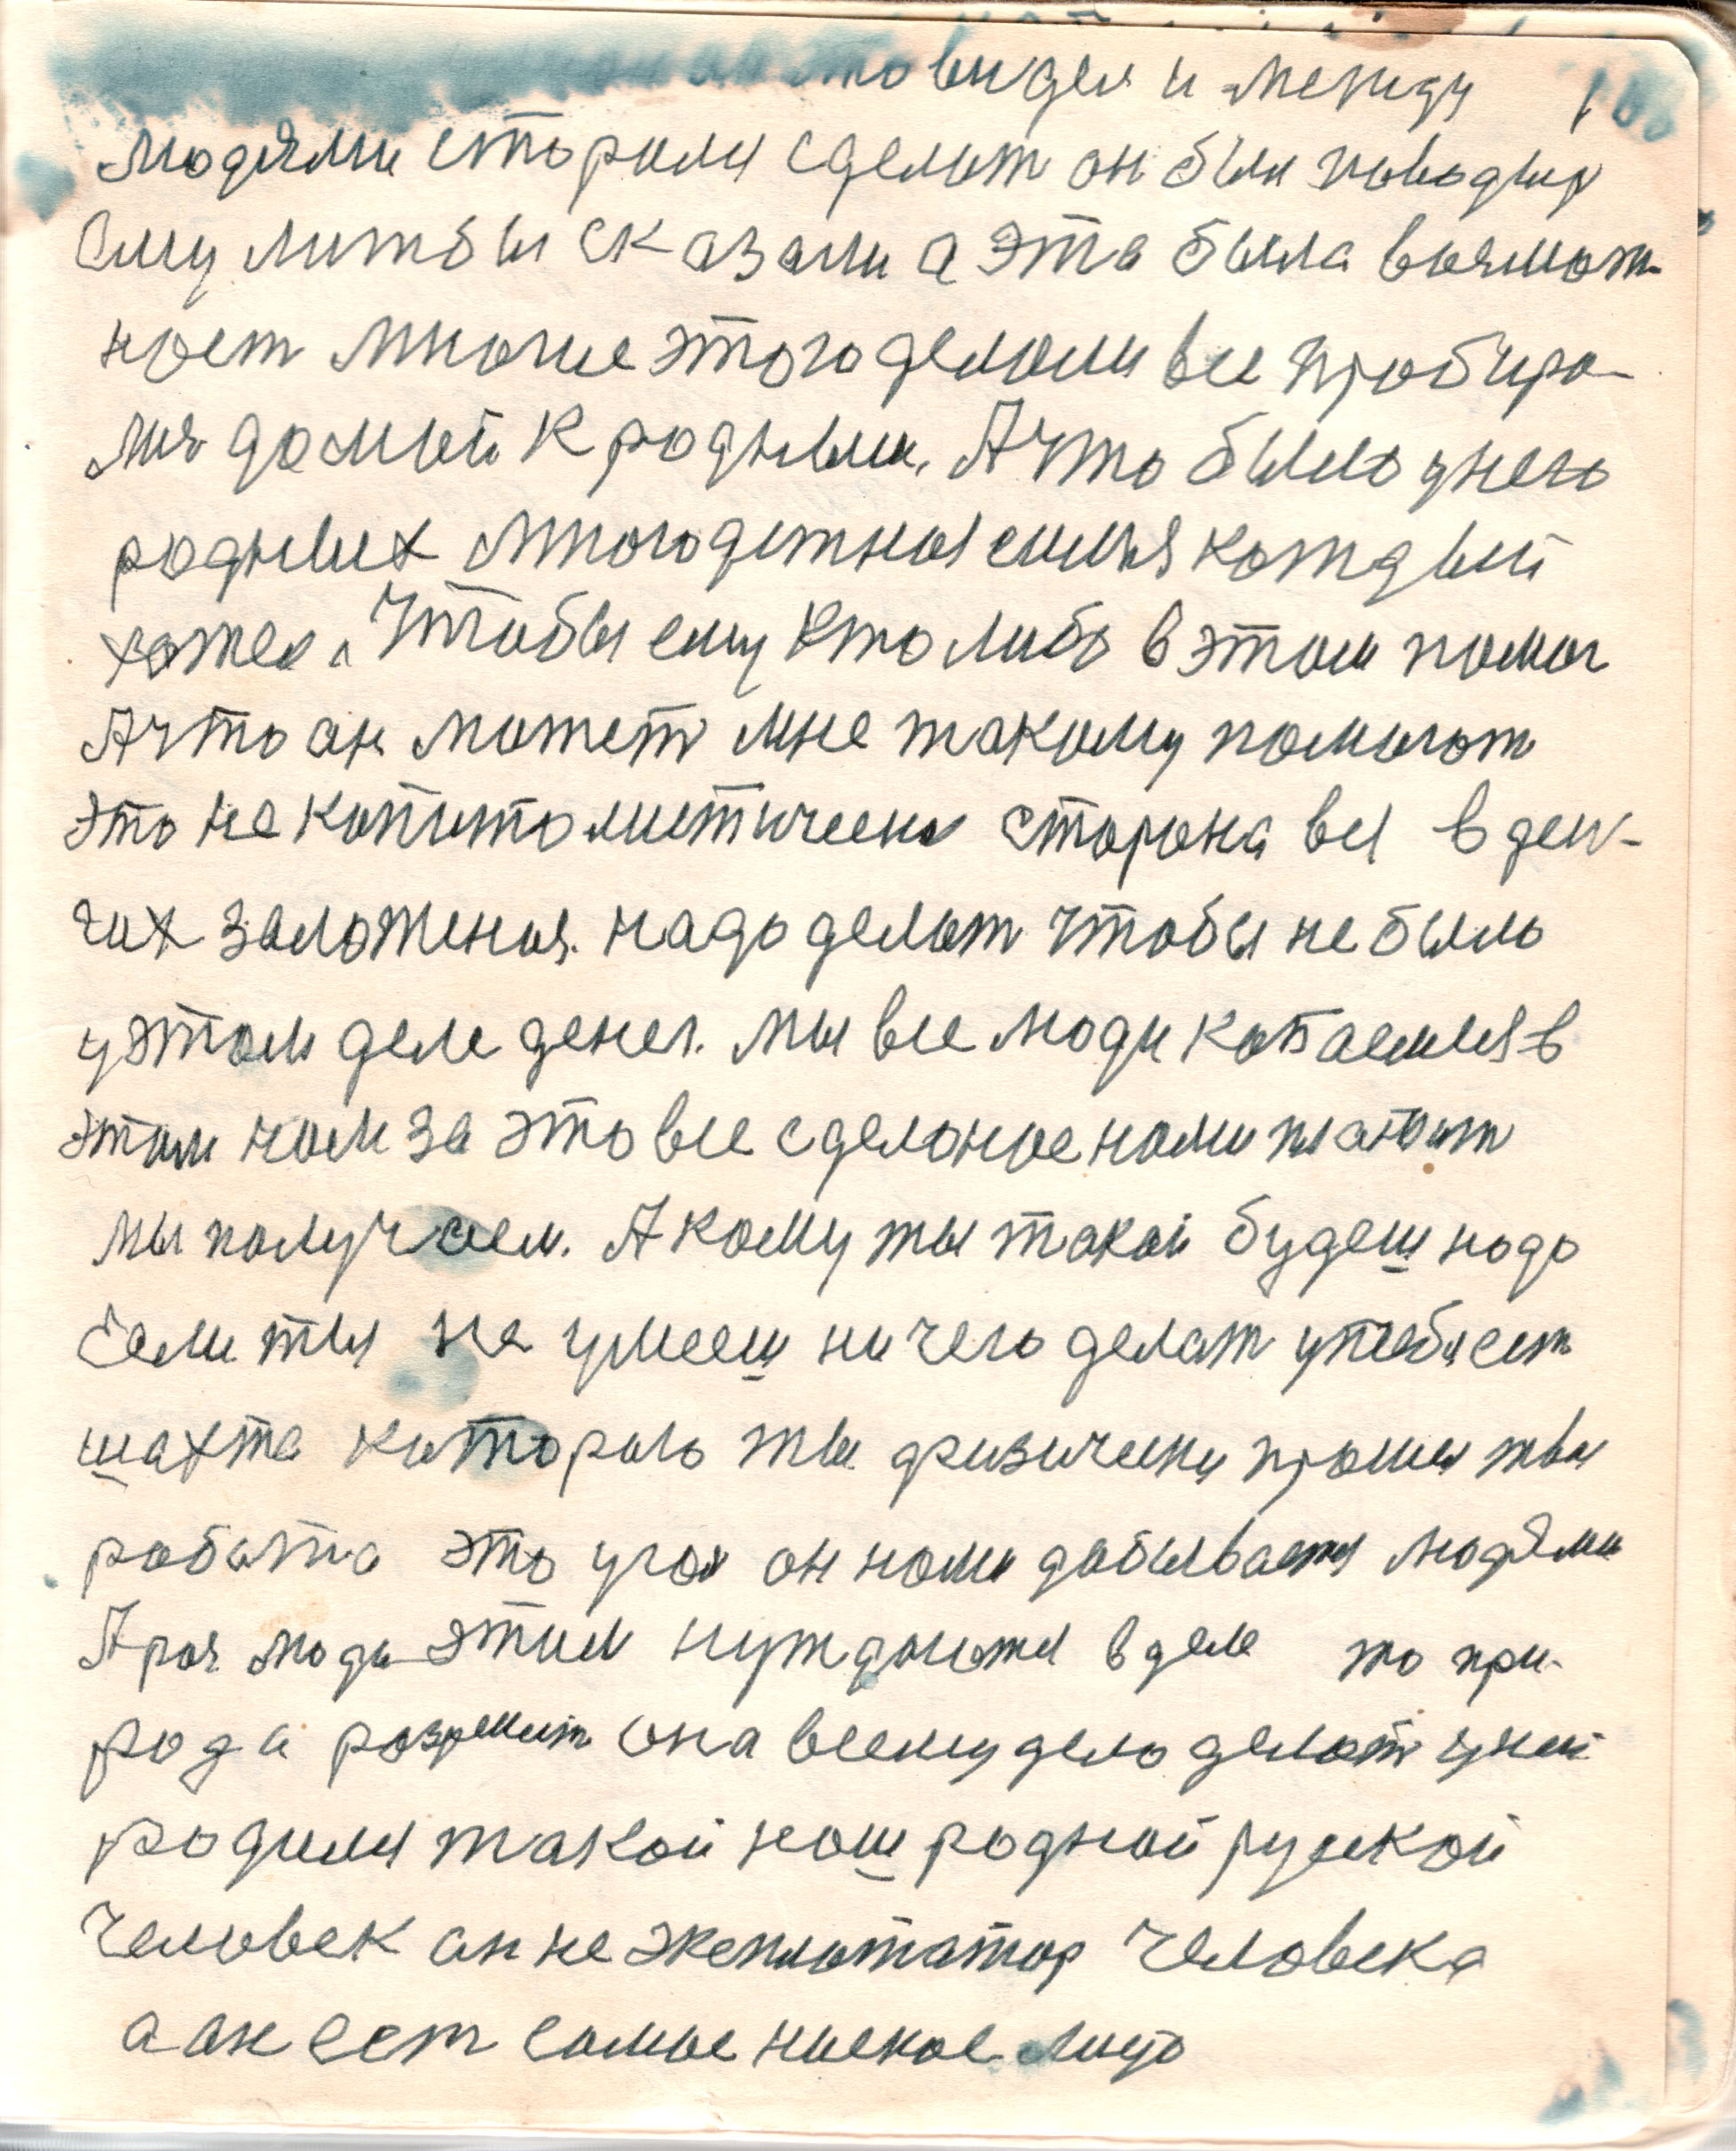 он это видел и между 188
людями сторался сделат он был поводыр
ему литбы сказали а эта была возмож-
ност многие этого делали все пробира-
лис домой к родным. А что было у него
родных многодетная семья каждый
хотел чтобы ему кто либо в этом помог
А что он может мне такому помогат
это не капитолистическа сторона вся в ден-
гах заложеная. надо делат чтобы не было
у этом деле денег. мы все люди копаемся в
этом нам за это все сделоное нами платит
мы получаем. А кому ты такой будеш надо
Если ты не умееш ничего делат у тебя ест
шахта которого ты физически прошел твая
работа это угол он нами добывается людями
А раз люди этим нуждаются в деле то при-
рода розрешит она всему дело делат у ней
родился такой наш родной руской
человек он не эксплотатор человека
а он ест самое ниское лицо